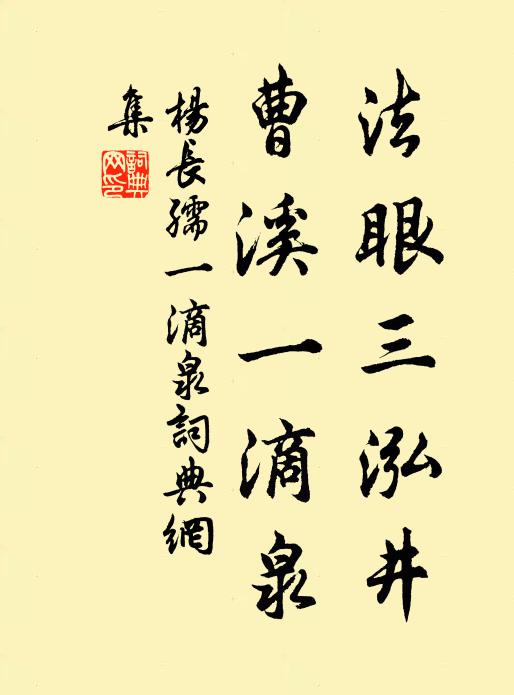 法眼三泓井
曹溪一滴泉
楊長孺一滴泉詞典網
集
詞典
网印